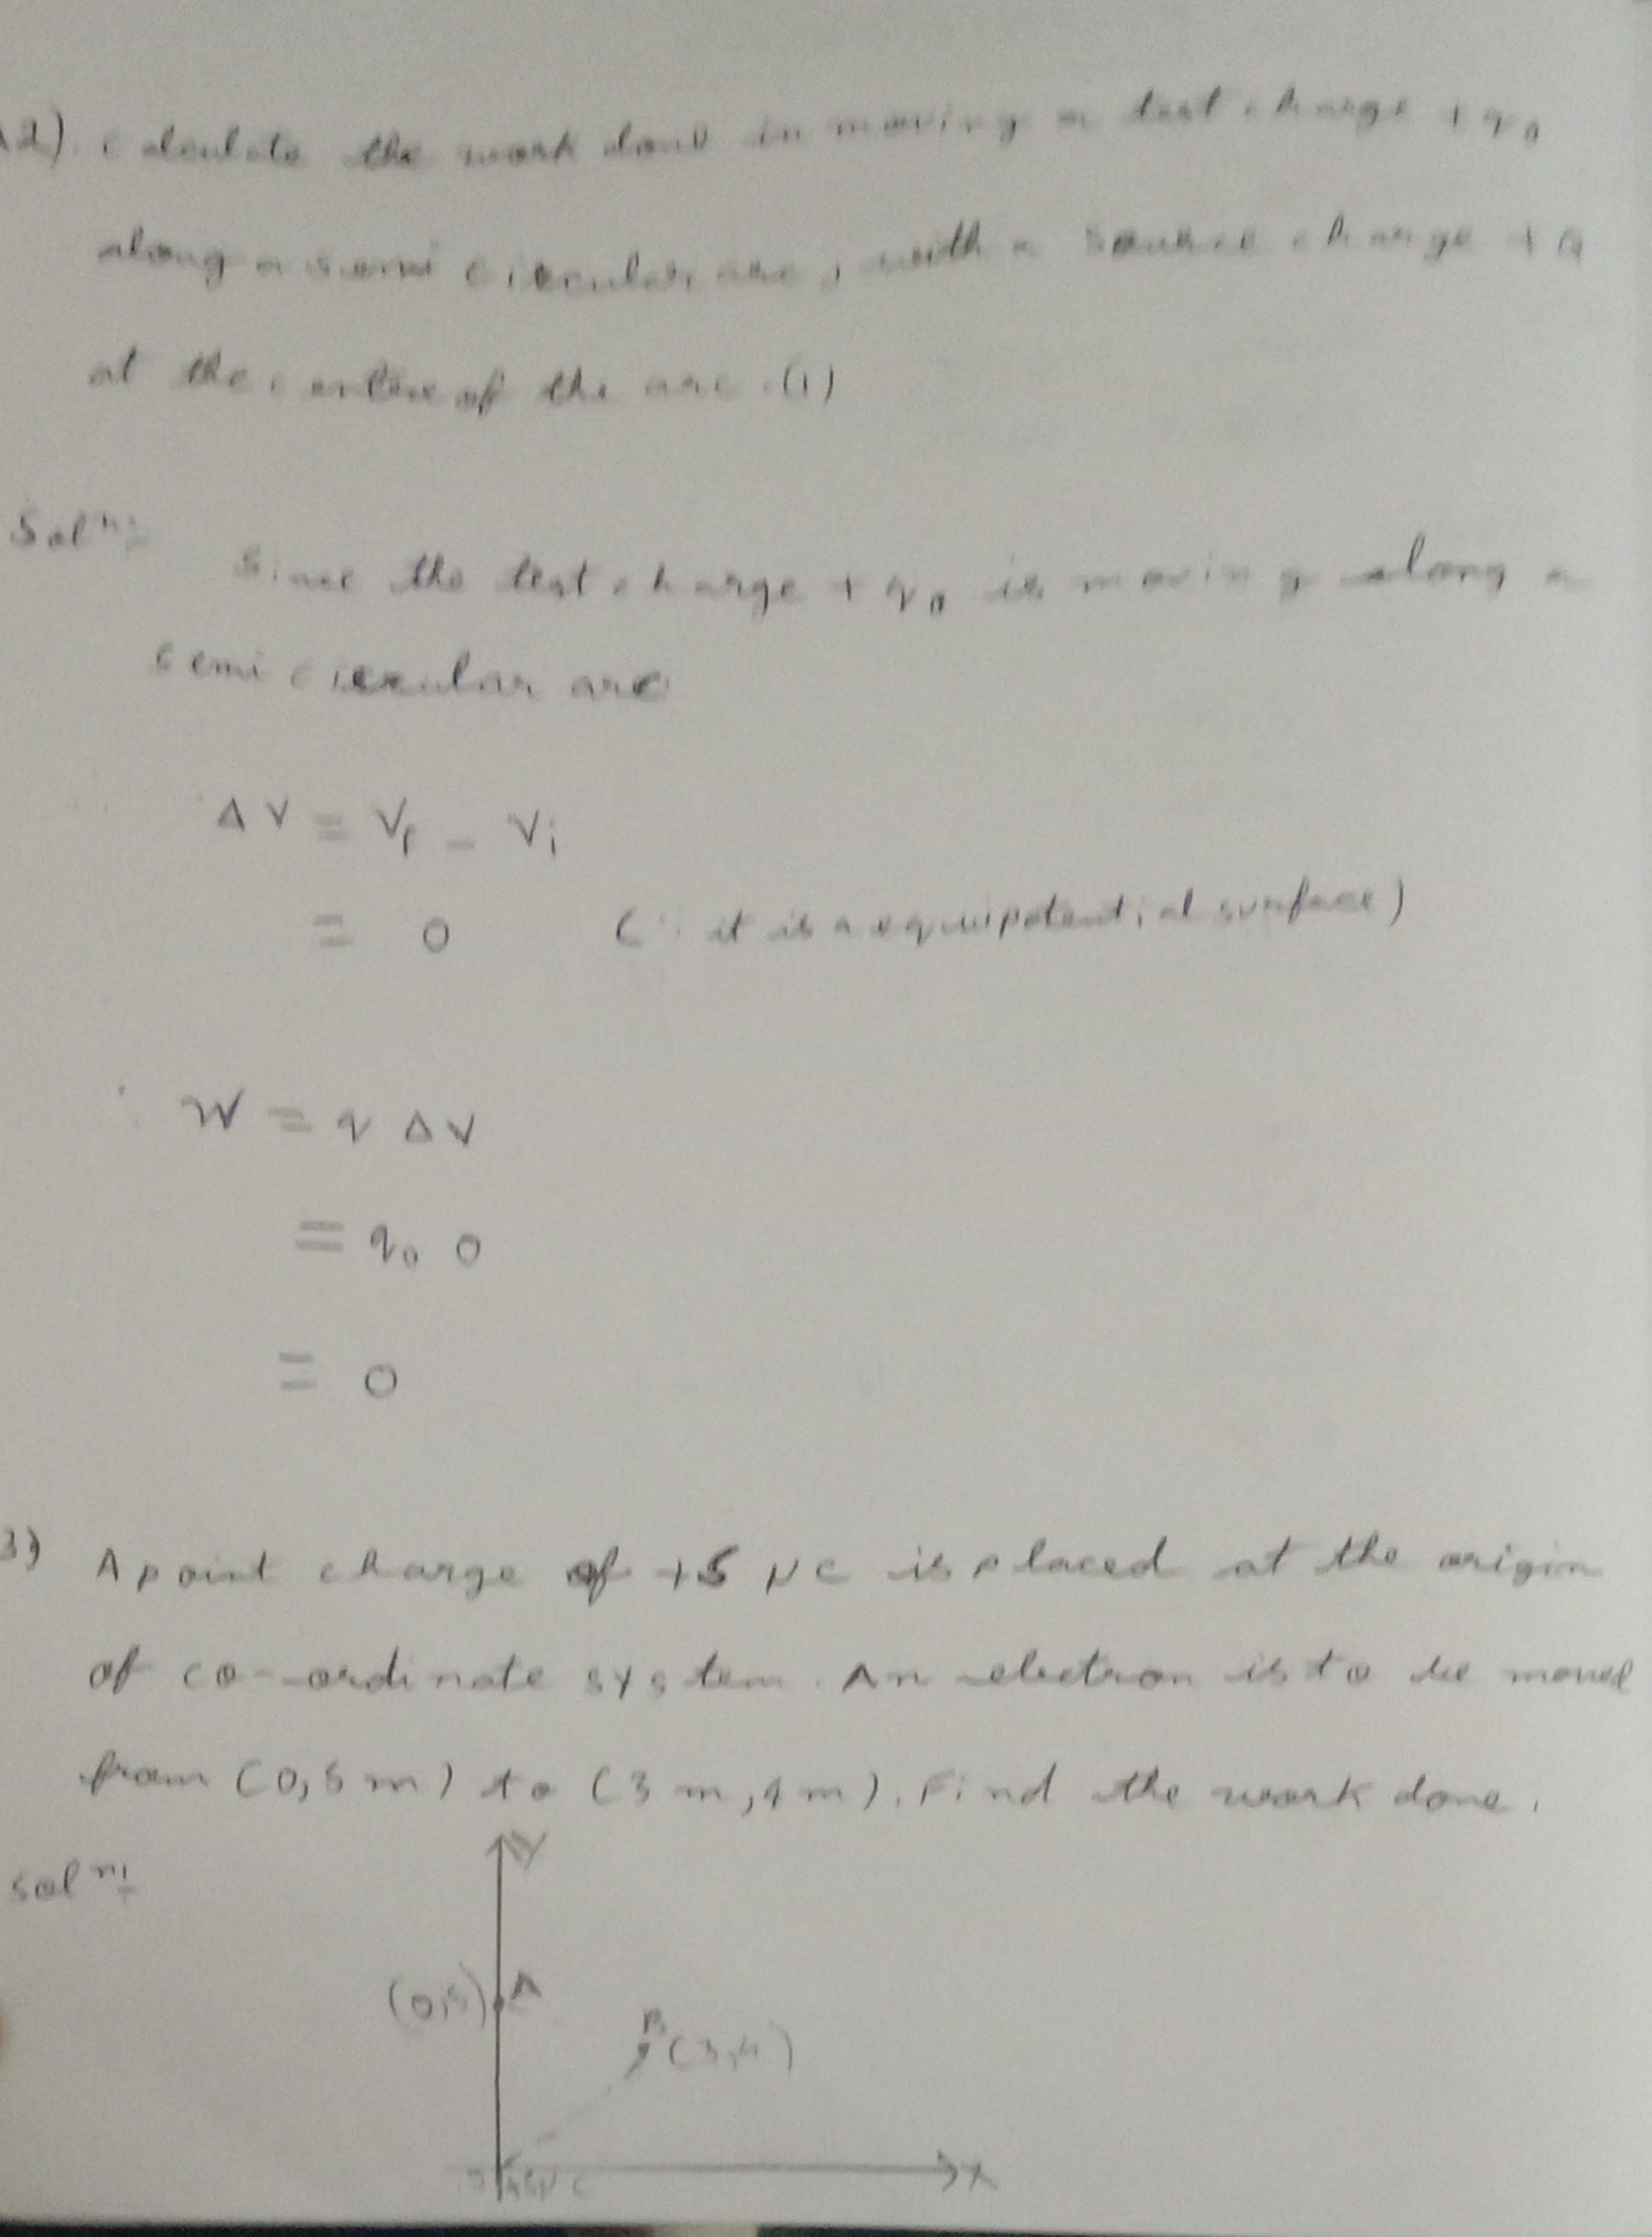 2). calculate the work done in moving a test charge +q₀
along a semi circular arc, with a source charge +Q
at the centre of the arc. (1)
Solⁿ:-
Since the test charge +q₀ is moving along a
semi circular arc
ΔV = Vf - Vi
= 0 (∵ it is a equipotential surface)
∴ W = q ΔV
= q₀ 0
= 0
3) A point charge of +5 μC is placed at the origin
of co-ordinate system. An electron is to be moved
from (0,5m) to (3m,4m). Find the work done.
Solⁿ:-
Y
(0,5) A
B (3,4)
+5μC X